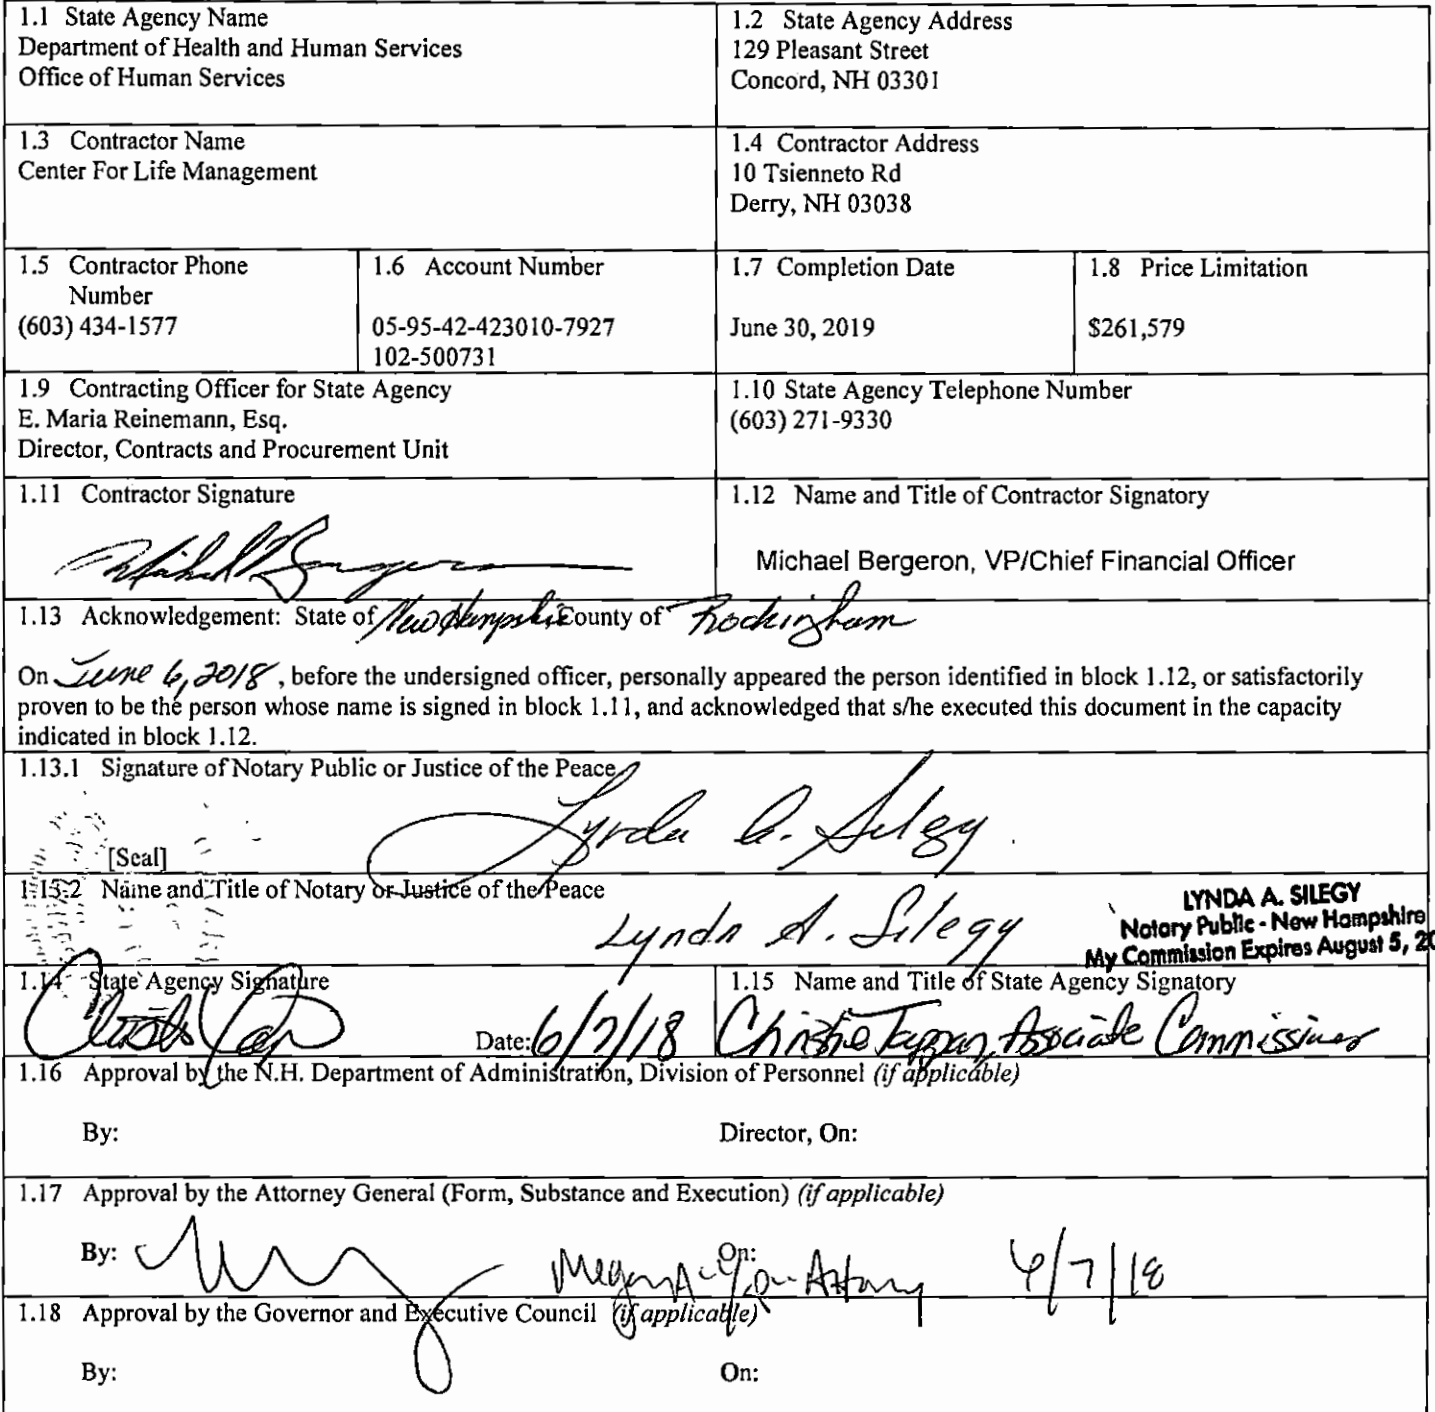 1.1 State Agency Name
Department of Health and Human Services
Office of Human Services
1.2 State Agency Address
129 Pleasant Street
Concord, NH 03301
1.3 Contractor Name
Center For Life Management
1.4 Contractor Address
10 Tsienneto Rd
Derry, NH 03038
1.5 Contractor Phone
Number
(603) 434-1577
1.6 Account Number
05-95-42-423010-7927
102-500731
1.7 Completion Date
June 30, 2019
1.8 Price Limitation
$261,579
1.9 Contracting Officer for State Agency
E. Maria Reinemann, Esq.
Director, Contracts and Procurement Unit
1.10 State Agency Telephone Number
(603) 271-9330
1.11 Contractor Signature
Michael Bergeron
1.12 Name and Title of Contractor Signatory
Michael Bergeron, VP/Chief Financial Officer
1.13 Acknowledgement: State of New Hampshire County of Rockingham
On June 6, 2018, before the undersigned officer, personally appeared the person identified in block 1.12, or satisfactorily
proven to be the person whose name is signed in block 1.11, and acknowledged that s/he executed this document in the capacity
indicated in block 1.12.
1.13.1 Signature of Notary Public or Justice of the Peace
Lynda A. Silegy
[Seal]
1.13.2 Name and Title of Notary or Justice of the Peace
Lynda A. Silegy
LYNDA A. SILEGY
Notary Public - New Hampshire
My Commission Expires August 5, 20
1.14 State Agency Signature
Date: 6/7/18
1.15 Name and Title of State Agency Signatory
Christine Tappan, Associate Commissioner
1.16 Approval by the N.H. Department of Administration, Division of Personnel (if applicable)
By:
Director, On:
1.17 Approval by the Attorney General (Form, Substance and Execution) (if applicable)
By:
On:
Attorney 6/7/18
1.18 Approval by the Governor and Executive Council (if applicable)
By:
On: